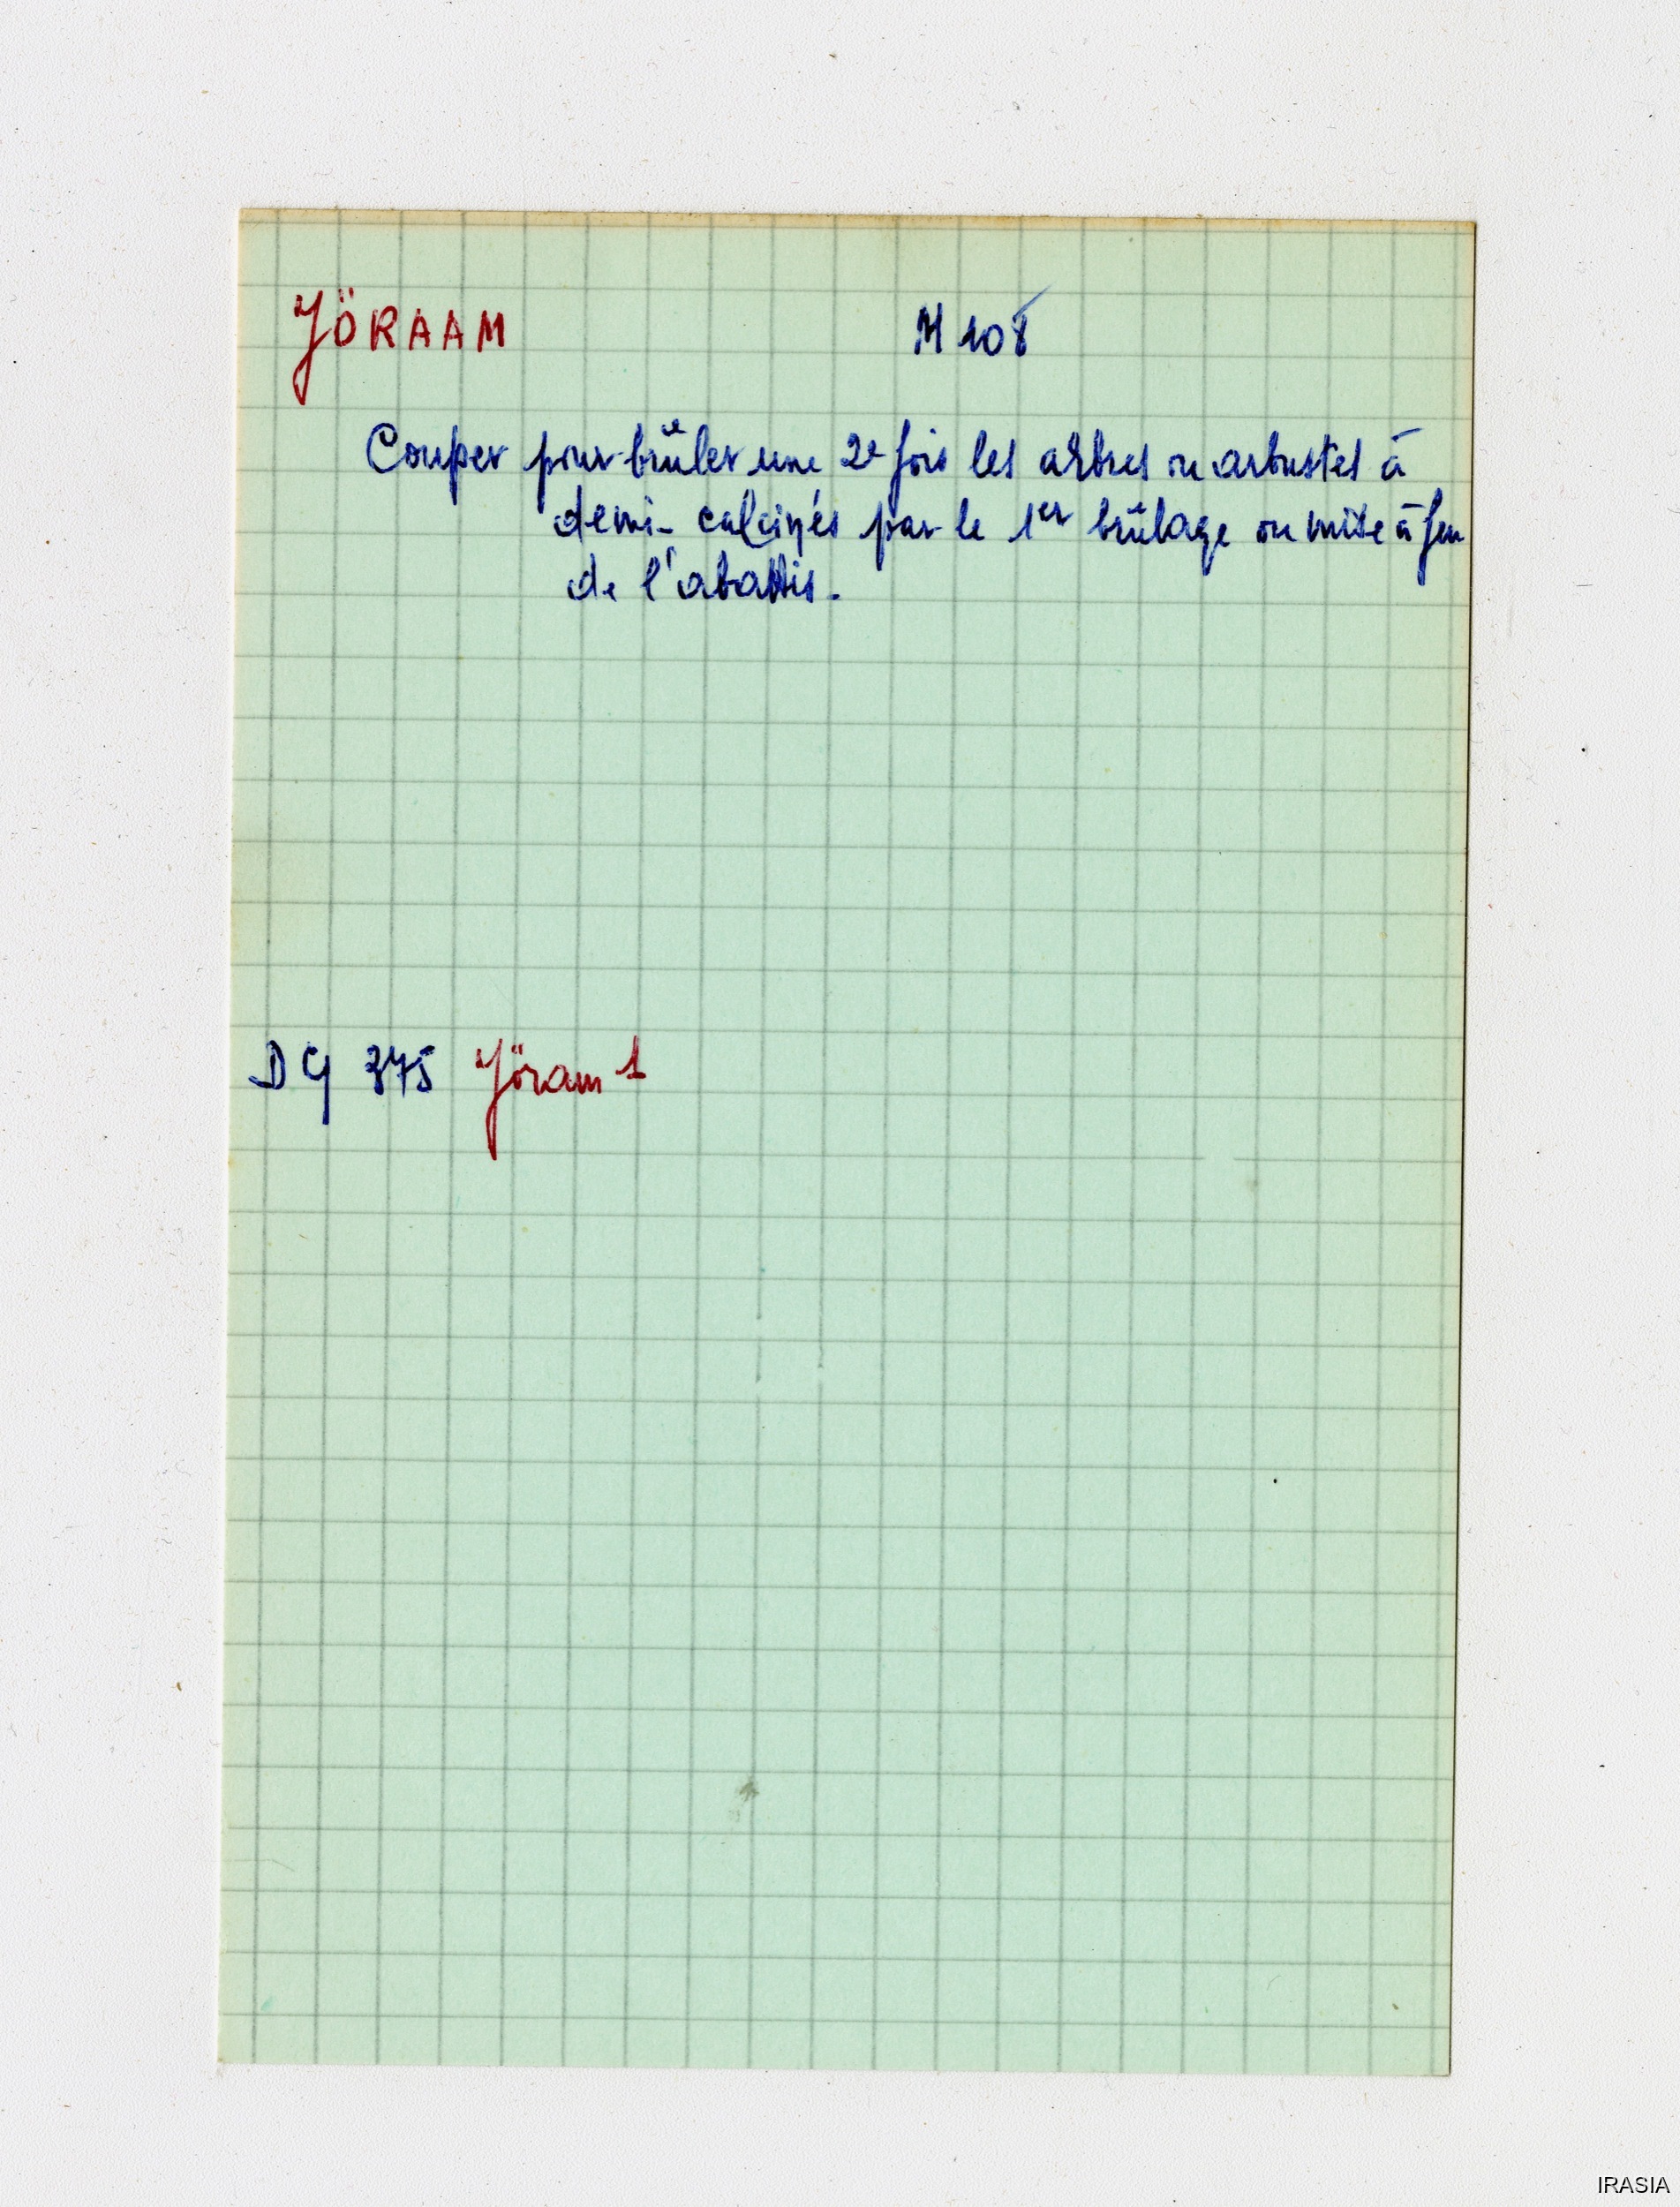 YÖRAAM M 108
Couper pour brûler une 2e fois les arbres ou arbustes à
demi-calcinés par le 1er brûlage ou mise à feu
de l'abattis.
DG 375 Yöram 1
IRASIA